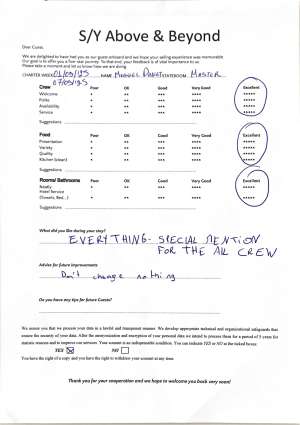 S/Y Above & Beyond
Dear Guest,
We are delighted to have had you as our guest onboard and we hope your sailing experience was memorable
Our goal is to offer you a five-star journey. To that end, your feedback is of vital importance to us.
Please take a moment and let us know how we are doing.
CHARTER WEEK 01/05/25 NAME STATEROOM MASTER
07/05/25
Crew Poor OK Good Very Good Excellent
Welcome * ** *** **** *****
Politeness * ** *** **** *****
Availability * ** *** **** *****
Service * ** *** **** *****
Suggestions
Food Poor OK Good Very Good Excellent
Presentation * ** *** **** *****
Variety * ** *** **** *****
Quality * ** *** **** *****
Kitchen (clean) * ** *** **** *****
Suggestions
Rooms/ Bathrooms Poor OK Good Very Good Excellent
Totally * ** *** **** *****
Hotel Service
(Towels, Bed...) * ** *** **** *****
Suggestions
What did you like during your stay?
EVERYTHING - SPECIAL MENTION
FOR THE ALL CREW
Advice for future improvements
Don't change nothing
Do you have any tips for future Guests?
We assure you that we process your data in a lawful and transparent manner. We develop appropriate technical and organizational safeguards that
ensure the security of your data. After the anonymization and encryption of your personal data we intend to process them for a period of 5 years for
statistic reasons and to improve our services. Your consent is an indispensable condition. You can indicate YES or NO at the linked boxes:
YES NO
You have the right of a copy and you have the right to withdraw your consent at any time.
Thank you for your cooperation and we hope to welcome you back very soon!